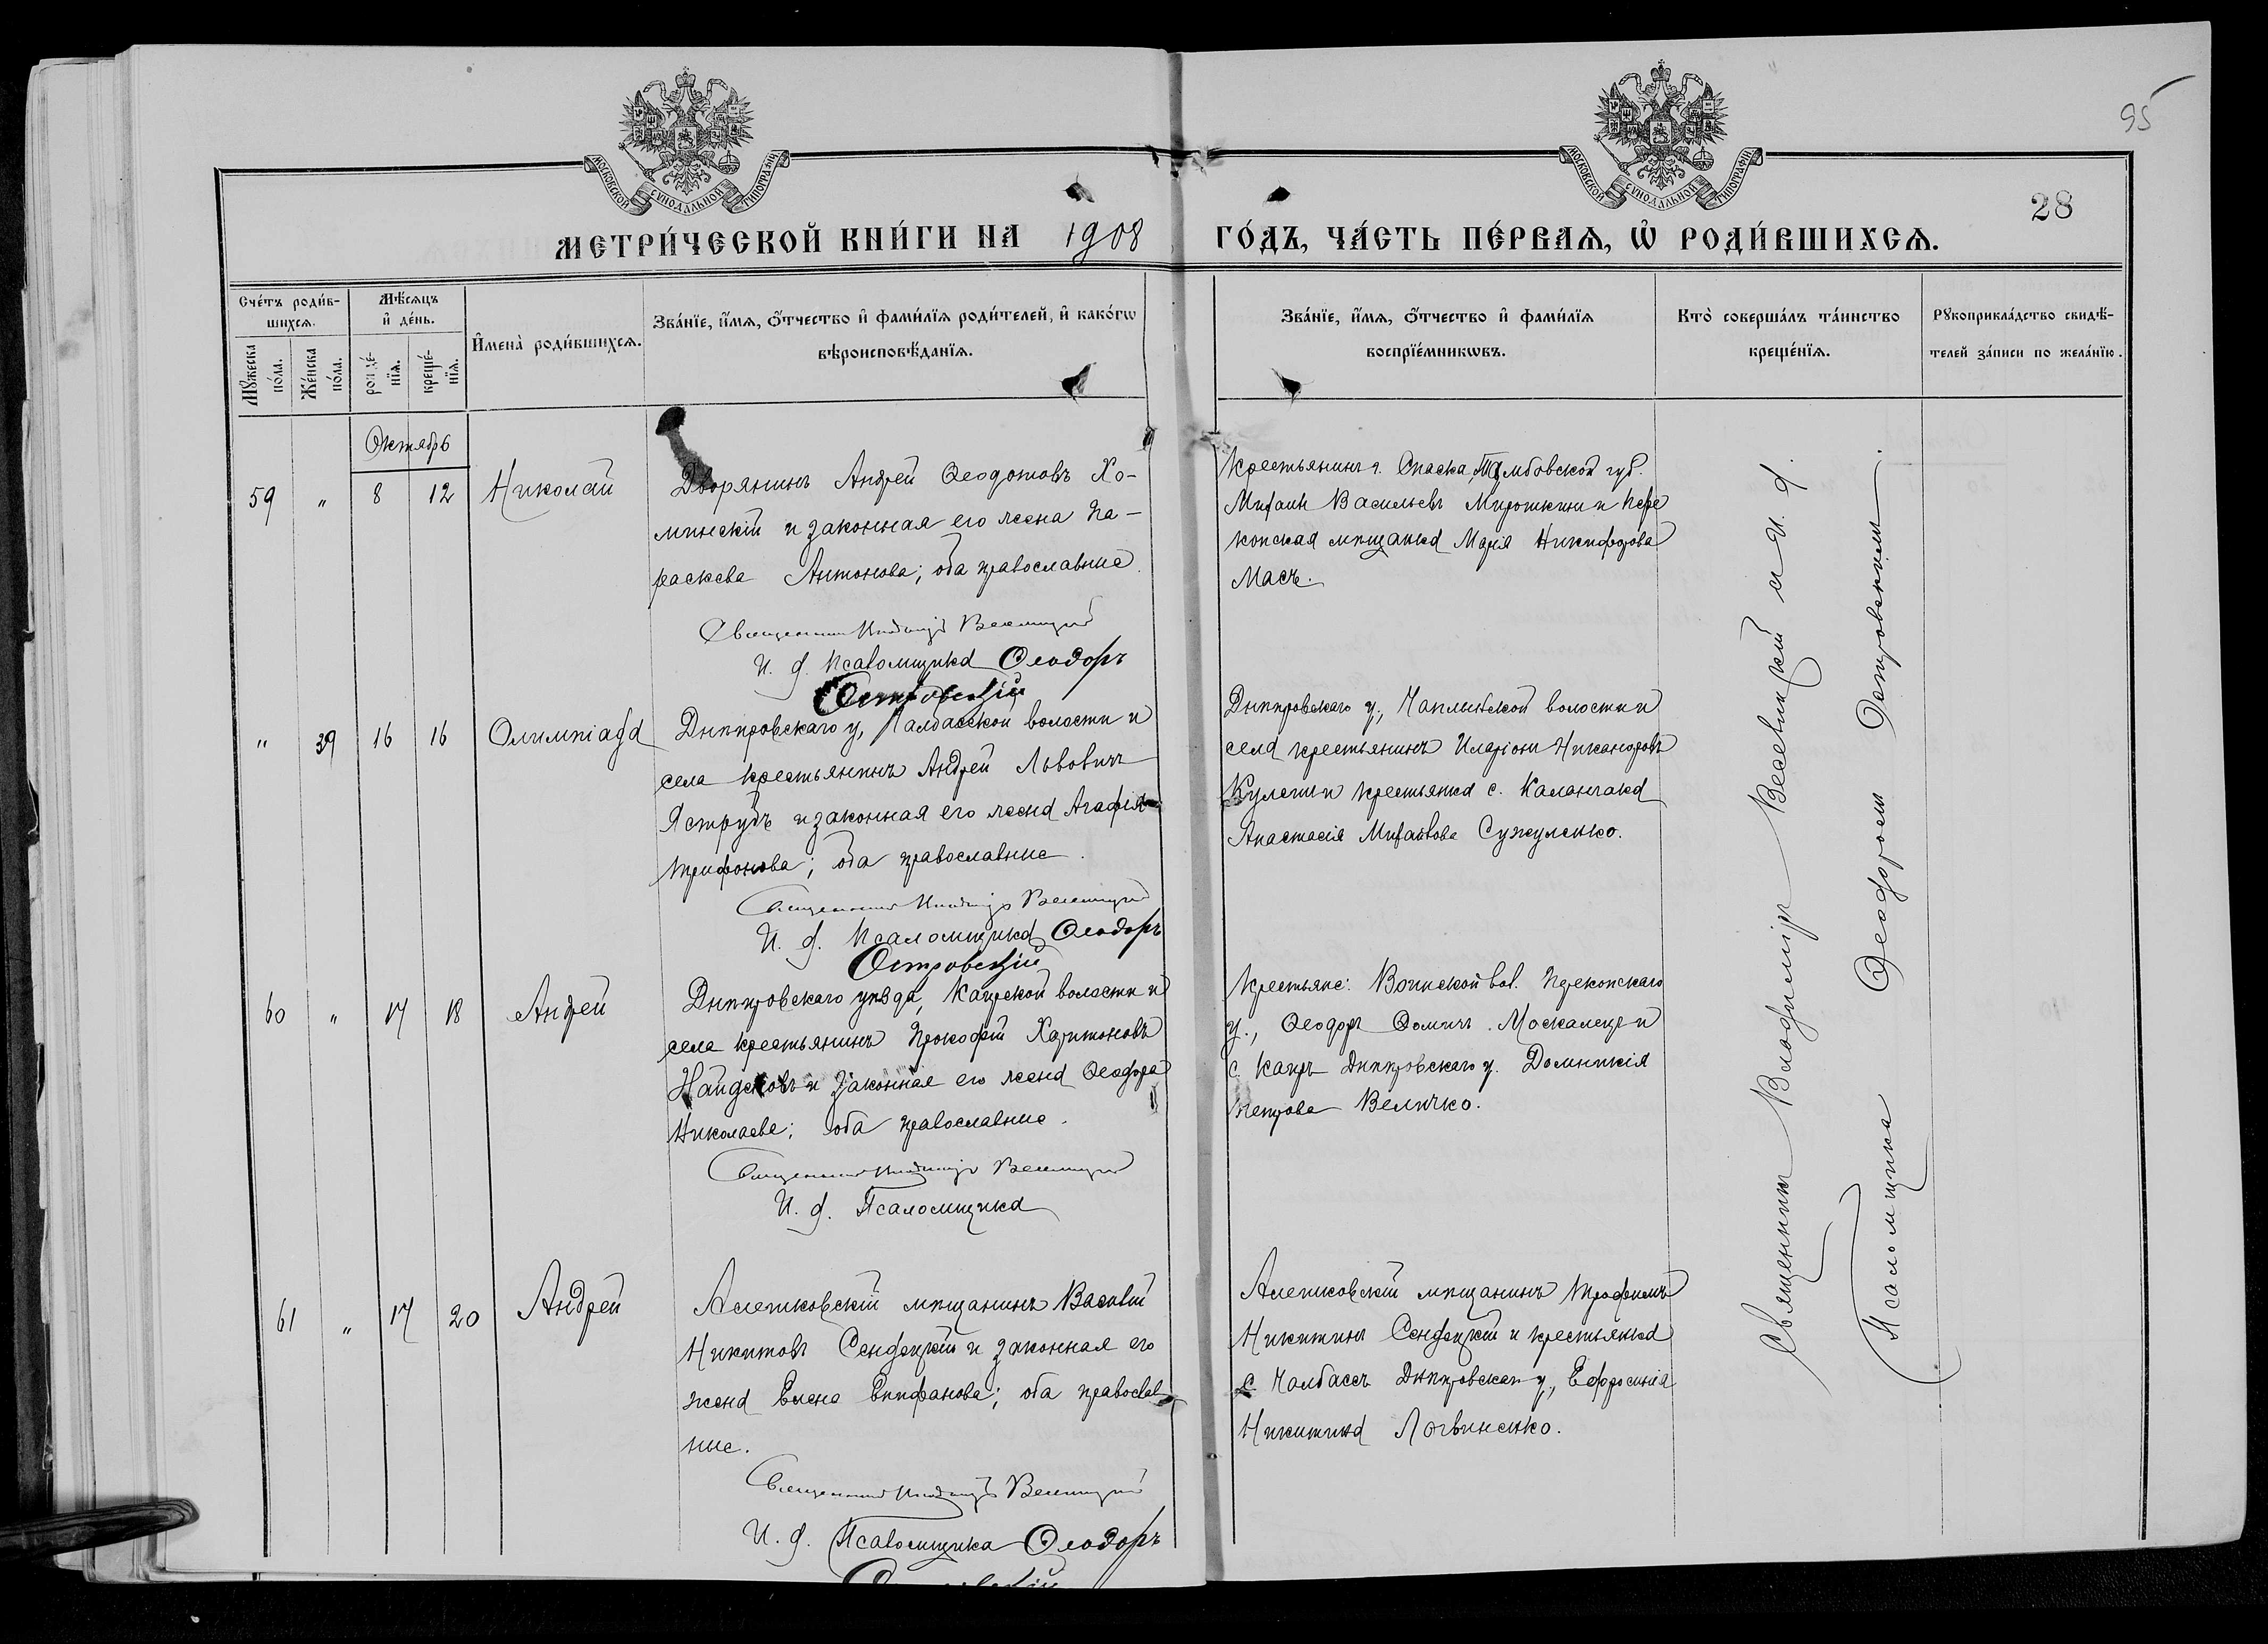 95
28
МОСКОВСКОЙ СѴНОДАЛЬНОЙ ТИПОГРАФІИ
МОСКОВСКОЙ СѴНОДАЛЬНОЙ ТИПОГРАФІИ
МЕТРИ́ЧЕСКОЙ КНИ́ГИ НА 1908 ГО́ДЪ, ЧА́СТЬ ПЕ́РВАѦ, Ѡ҆ РОДИ́ВШИХСѦ.
Сче́тъ роди́в-
шихсѧ.
Мꙋ́жеска по́ла.
Же́нска по́ла.
Мѣ́сѧцъ
и҆ де́нь.
рожде́-
нїѧ.
креще́-
нїѧ.
И҆мена̀ роди́вшихсѧ.
Зва́нїе, и҆́мѧ, ѻ҆́тчество и҆ фами́лїѧ роди́телей, и҆ како́гѡ
вѣроисповѣ́данїѧ.
Зва́нїе, и҆́мѧ, ѻ҆́тчество и҆ фами́лїѧ
воспрїе́мникѡвъ.
Кто̀ соверша́лъ та́инство
креще́нїѧ.
Рꙋкоприкла́дство свидѣ́-
телей за́писи по жела́нїю.
Октябрь
59 " 8 12 Николай
Дворянинъ Андрей Ѳеодотовъ Хо-
минскій и законная его жена Па-
раскева Антонова; оба православные.
Священникъ Владиміръ Веселицкій
И. д. псаломщика Ѳеодоръ
Островскій
Крестьянинъ г. Спаска, Тамбовской губ.
Михаилъ Васильевъ Мирошкинъ и пере
копская мѣщанка Марія Никифорова
Масъ.
" 39 16 16 Олимпіада
Днѣпровскаго у, Чалбасской волости и
села крестьянинъ Андрей Львовичъ
Яструбъ и законная его жена Агафія
Трифонова; оба православные.
Священникъ Владиміръ Веселицкій
И. д. Псаломщика Ѳеодоръ
Островскій
Днѣпровскаго у., Чаплынской волости и
села крестьянинъ Иларіонъ Никаноровъ
и крестьянка с. Каланчака
Анастасія Михайлова Сужуленко.
60 " 17 18 Андрей
Днѣпровскаго уѣзда, Каирской волости и
села крестьянинъ Прокофій Харитоновъ
Найденовъ и законная его жена Ѳеодора
Николаева; оба православные.
Священникъ Владиміръ Веселицкій
И. д. Псаломщика
Крестьяне: Воинской вол. Перекопскаго
у., Ѳеодоръ Ѳомичъ Москалецъ и
с. Каиръ Днѣпровскаго у. Домникія
Петрова Величко.
61 " 17 20 Андрей
Алешковскій мѣщанинъ Василій
Никитовъ Сендецкій и законная его
жена Елена Епифанова; оба православ
ные.
Священникъ Владиміръ Веселицкій
И. д. Псаломщика Ѳеодоръ
Алешковскій мѣщанинъ Трофимъ
Никитинъ Сендецкій и крестьянка
с. Чалбассъ Днѣпровскаго у., Ефросинія
Никитина Логвиненко.
Священникъ Владиміръ Веселицкій и и. д.
Псаломщика Ѳеодоромъ Островскимъ